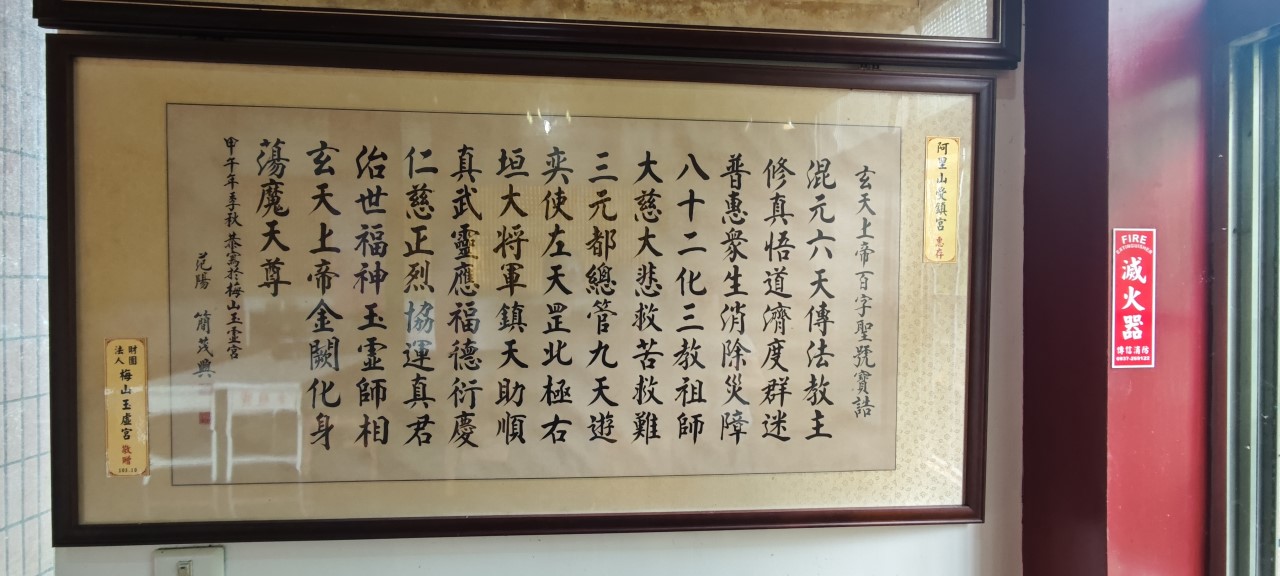 阿里山受鎮宮 惠存
玄天上帝百字聖號寶誥
混元六天傳法教主
修真悟道濟度群迷
普惠衆生消除災障
八十二化三教祖師
大慈大悲救苦救難
三元都總管九天遊
奕使左天罡北極右
垣大將軍鎮天助順
真武靈應福德衍慶
仁慈正烈協運真君
治世福神玉虛師相
玄天上帝金闕化身
蕩魔天尊
甲午年季秋 恭寫於梅山玉虛宮
范陽 簡茂興
財團法人 梅山玉虛宮 敬贈
FIRE
EXTINGUISHER
滅火器